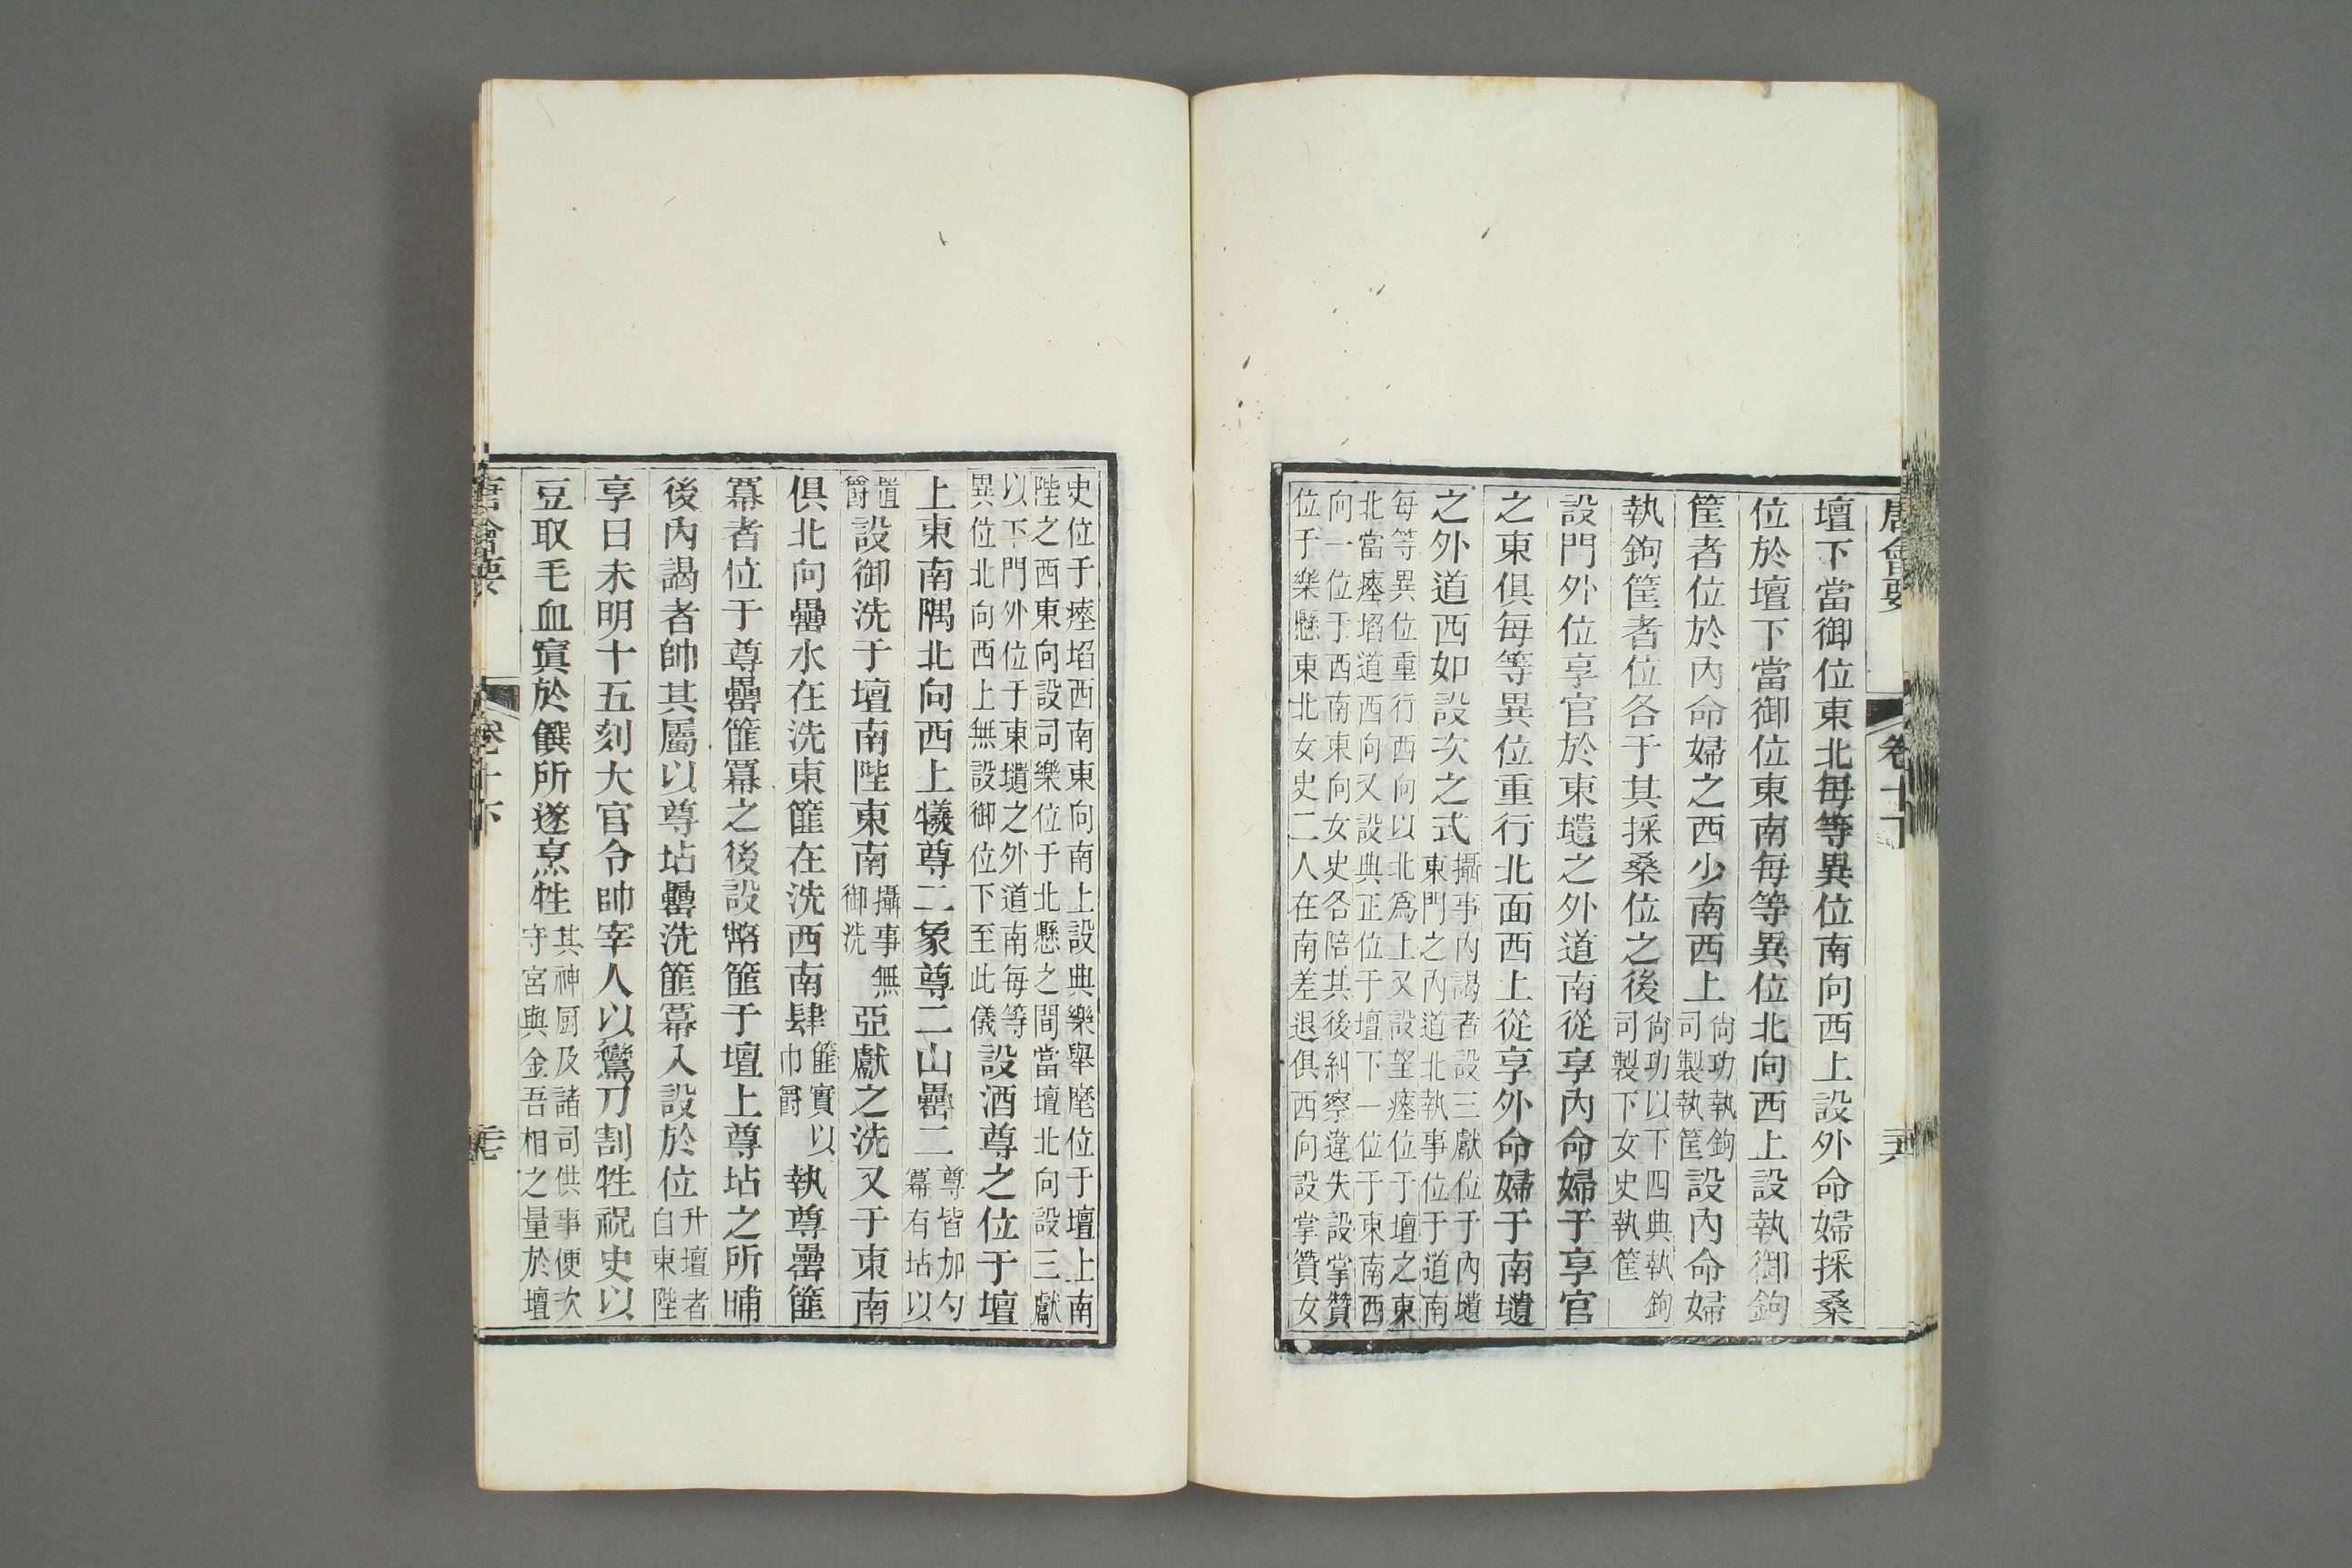 唐會要 卷十下 三六
壇下當御位東北每等異位南向西上設外命婦採桑
位於壇下當御位東南每等異位北向西上設執御鉤
筐者位於內命婦之西少南西上尙功執鉤司製執筐設內命婦
執鉤筐者位各于其採桑位之後尙功以下四典執鉤司製下女史執筐
設門外位享官於東壝之外道南從享內命婦于享官
之東俱每等異位重行北面西上從享外命婦于南壝
之外道西如設次之式攝事內謁者設三獻位于內壝東門之內道北執事位于道南
每等異位重行西向以北爲上又設望瘞位于壇之東
北當瘞埳道西向又設典正位于壇下一位于東南西
向一位于西南東向女史各陪其後糾察違失設掌贊
位于樂懸東北女史二人在南差退俱西向設掌贊女
史位于瘞埳西南東向南上設典樂舉麾位于壇上南
陛之西東向設司樂位于北懸之間當壇北向設三獻
以下門外位于東壝之外道南每等
異位北向西上無設御位下至此儀設酒尊之位于壇
上東南隅北向西上犧尊二象尊二山罍二尊皆加勺冪有坫以
置爵設御洗于壇南陛東南攝事無御洗亞獻之洗又于東南
俱北向罍水在洗東篚在洗西南肆篚實以巾爵執尊罍篚
冪者位于尊罍篚冪之後設幣篚于壇上尊坫之所晡
後內謁者帥其屬以尊坫罍洗篚冪入設於位升壇者自東陛
享日未明十五刻大官令帥宰人以鸞刀割牲祝史以
豆取毛血寘於饌所遂烹牲其神厨及諸司供事便次守宮與金吾相之量於壇
唐會要 卷十下 三七